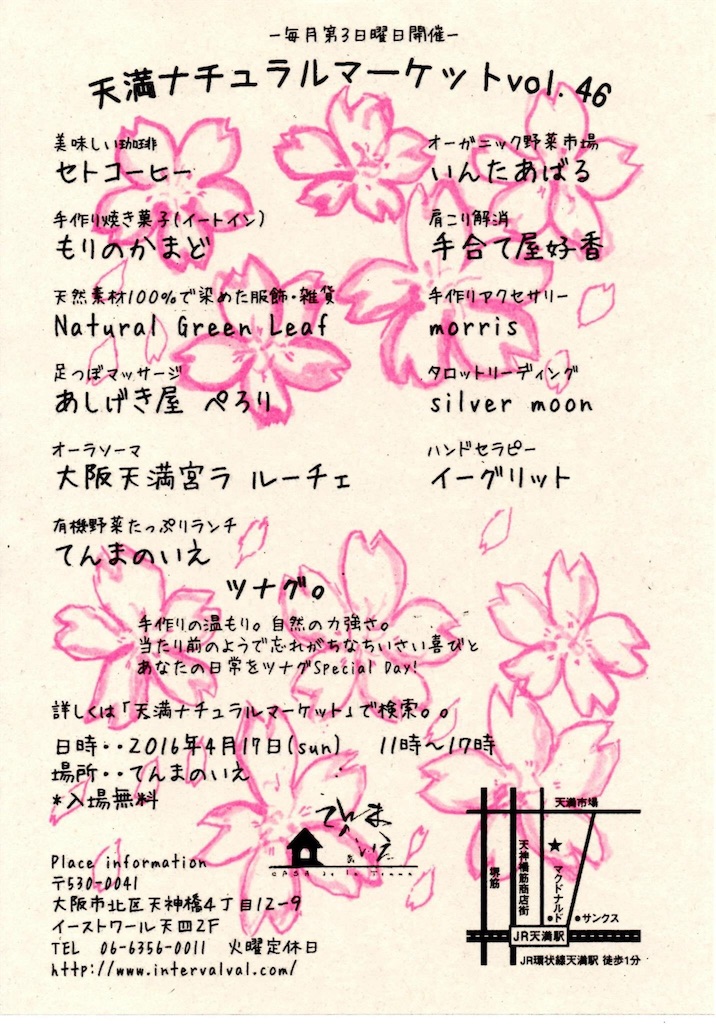 －毎月第3日曜日開催－
天満ナチュラルマーケットvol.46
美味しい珈琲
セトコーヒー
手作り焼き菓子(イートイン)
もりのかまど
天然素材100%で染めた服飾・雑貨
Natural Green Leaf
足つぼマッサージ
あしげき屋 ぺろり
オーラソーマ
大阪天満宮ラ ルーチェ
有機野菜たっぷりランチ
てんまのいえ
オーガニック野菜市場
いんたあばる
肩こり解消
手合て屋好香
手作りアクセサリー
morris
タロットリーディング
silver moon
ハンドセラピー
イーグリット
ツナグ。
手作りの温もり。自然の力強さ。
当たり前のようで忘れがちなちいさい喜びと
あなたの日常をツナグSpecial Day!
詳しくは「天満ナチュラルマーケット」で検索。。
日時・・2016年4月17日(sun) 11時～17時
場所・・てんまのいえ
*入場無料
Place information
〒530-0041
大阪市北区天神橋4丁目12-9
イーストワール天四2F
TEL 06-6356-0011 火曜定休日
http://www.intervalval.com/
てんま
のいえ
CASA de la Tenma
天満市場
堺筋
天神橋筋商店街
★
マクドナルド
サンクス
JR天満駅
JR環状線天満駅 徒歩1分